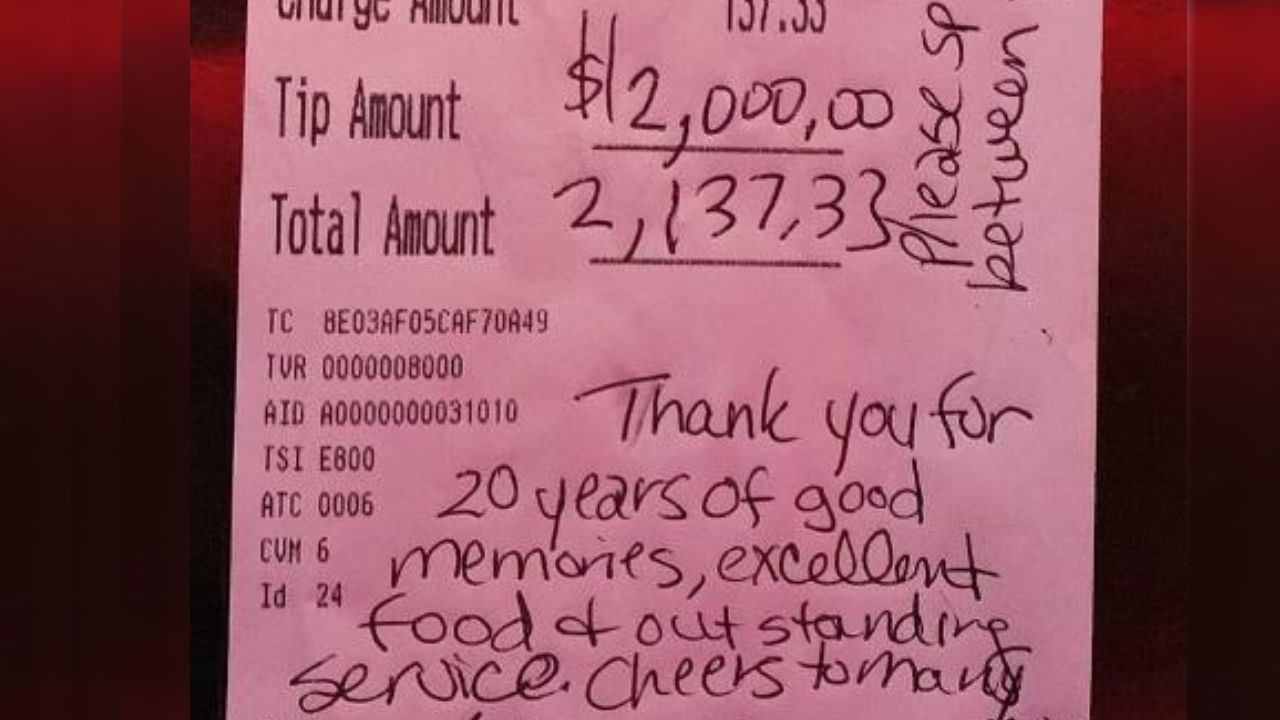 Charge Amount 137.33
Tip Amount $2,000,00
Total Amount 2,137,33
Please sp
between
TC 8E03AF05CAF70A49
TVR 0000008000
AID A0000000031010
TSI E800
ATC 0006
CVM 6
Id 24
Thank you for
20 years of good
memories, excellent
food & out standing
service. Cheers to many